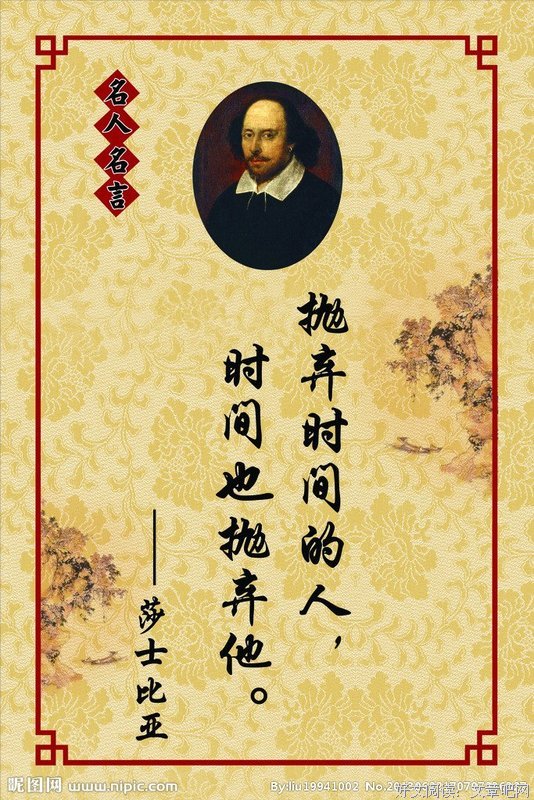 名人名言
抛弃时间的人，
时间也抛弃他。
——莎士比亚
昵图网 www.nipic.com
By:liu19941002